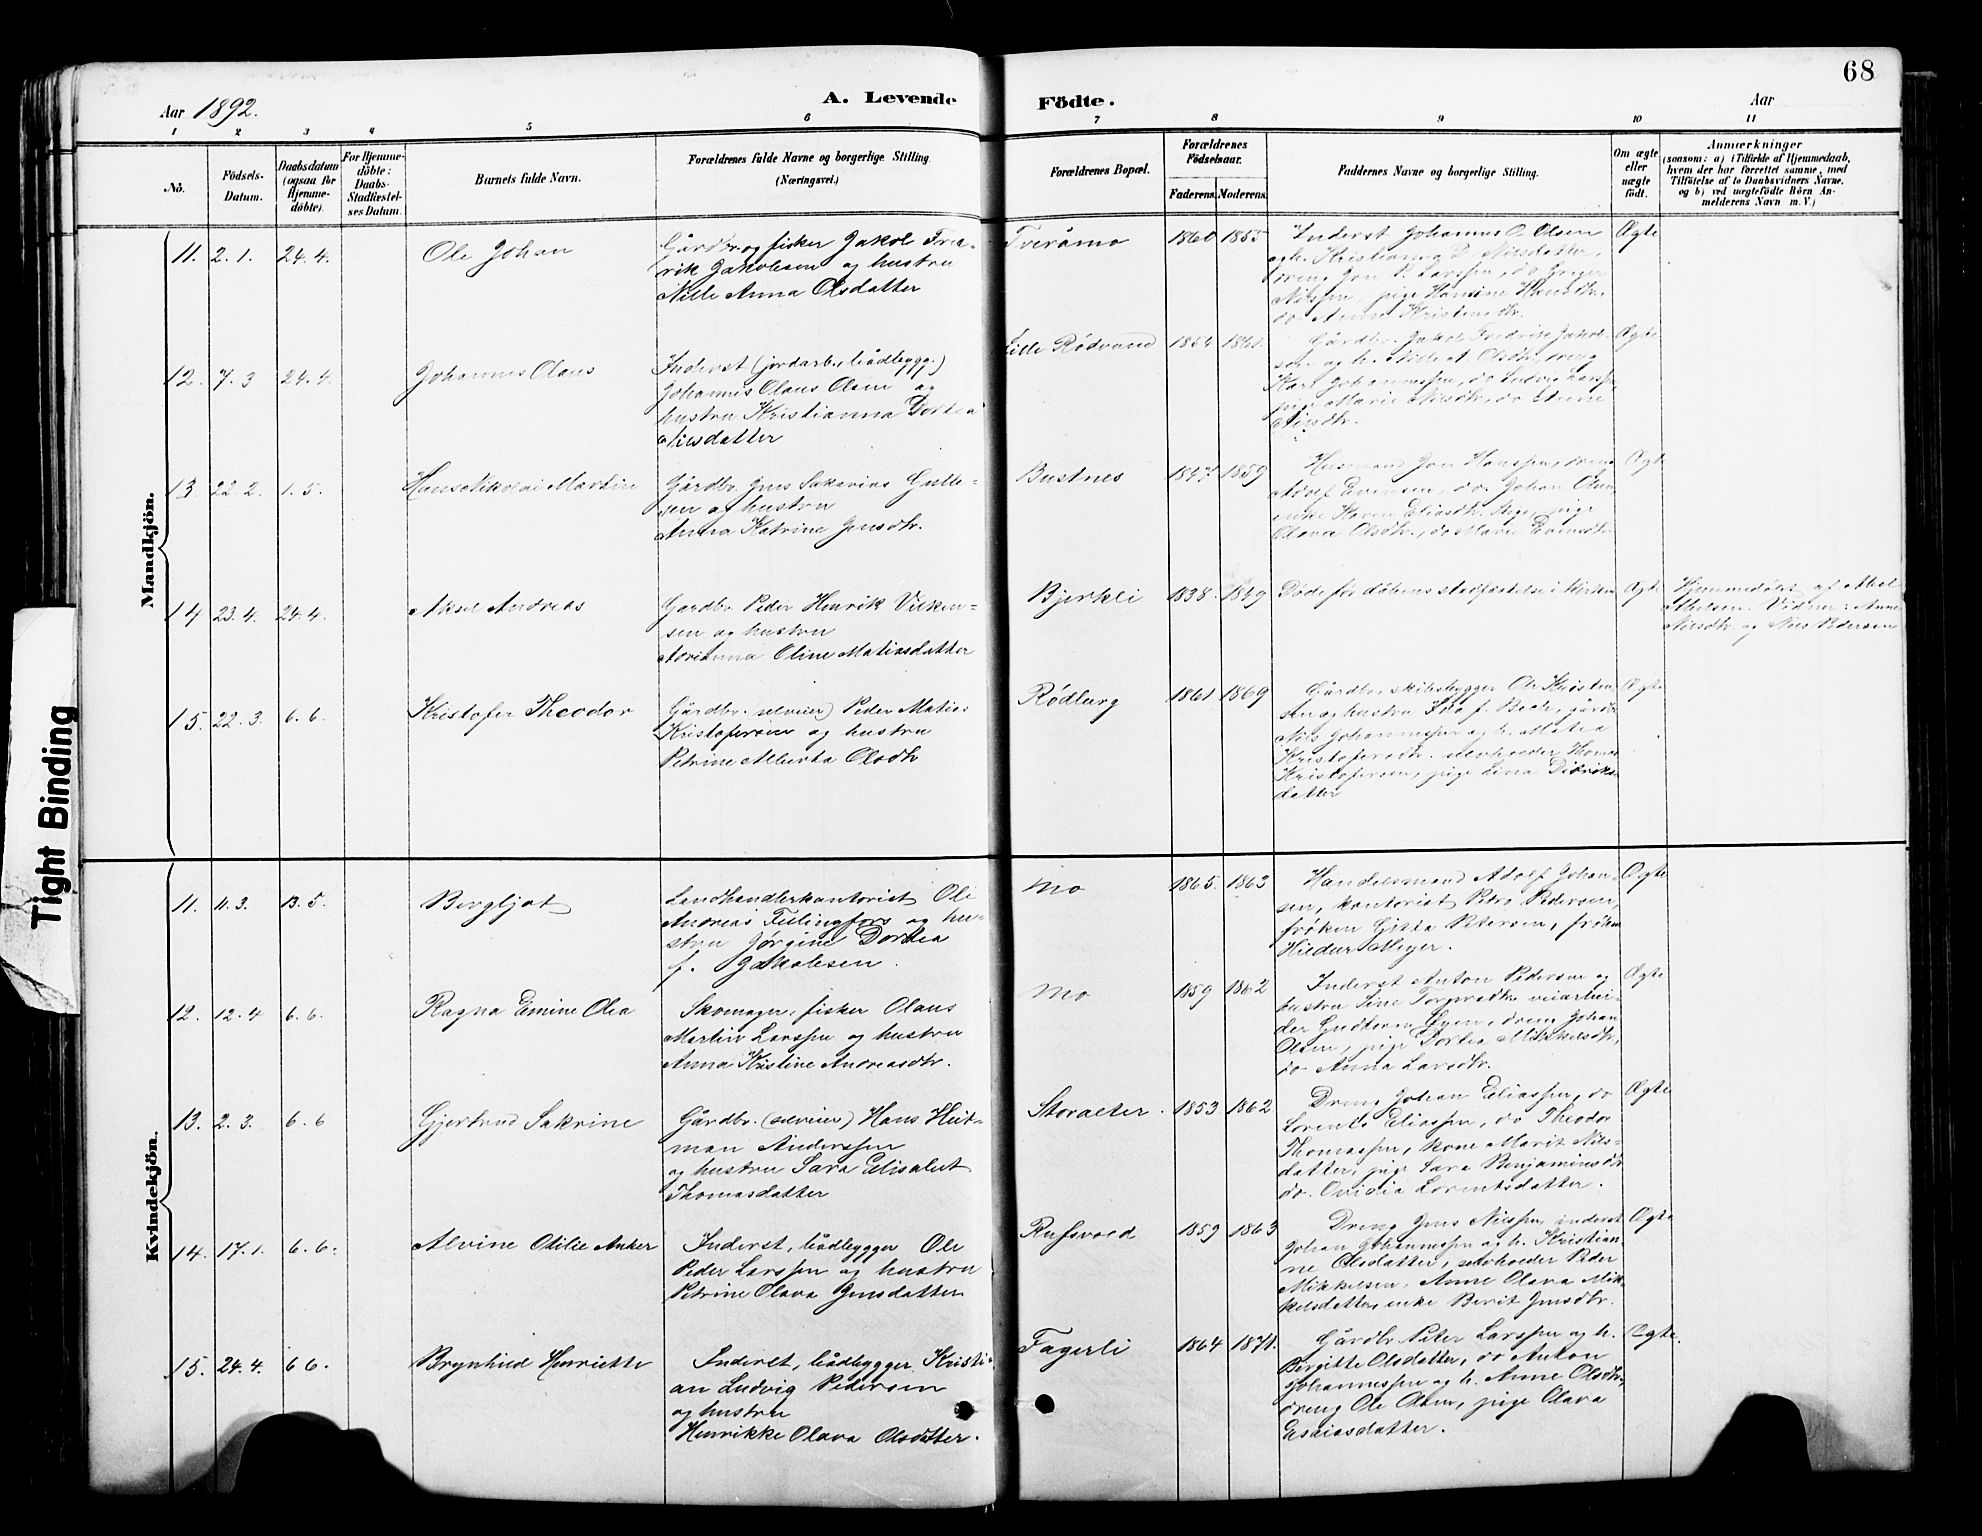 68
Aar 1892.
A. Levende
Födte.
Aar
1 2 3 4 5 6 7 8 9 10 11
No.
Födsels-
Datum.
Daabsdatum
(ogsaa for
Hjemme-
döbte).
For Hjemme-
döbte:
Daabs-
Stadfæstel-
ses Datum.
Barnets fulde Navn.
Forældrenes fulde Navne og borgerlige Stilling
(Næringsvei.)
Forældrenes Bopæl.
Forældrenes
Födselsaar.
Faderens. Moderens.
Faddernes Navne og borgerlige Stilling.
Om ægte
eller
uægte
födt.
Anmærkninger
(saasom: a) i Tilfælde af Hjemmedaab,
hvem der har forrettet samme, med
Tilföielse af to Daabsvidners Navne,
og b) ved uægtefödte Börn An-
melderens Navn m. V.)
Mandkjön.
11. 2. 1. 24. 4. Ole Johan
Gårdbr. og fisker Jakob Fred-
rik Jakobsen og hustru
Nille Anna Olsdatter
Tveråmo 1860 1855
Inderst Johannes O. Olsen
og h. Kristianna D. Nilsdatter,
dreng Jon P. Larssen, do Jørgen
Nilssen, pige Hansine Hansdtr.
do Anna Kristensdtr.
Ægte
12. 7. 3 24. 4. Johannes Olaus
Inderst (jordarb., bådbygg.)
Johannes Olaus Olsen og
hustru Kristianna Dortea
Nilsdatter
Lille Rødvand 1854 1861.
Gårdbr. Jakob Fredrik Jakob-
sen og h. Nille A. Olsdtr., dreng
Karl Johannessen, do Ludvig Larssen,
pige Marie Nilsdtr., do Anne
Nilsdtr.
Ægte
13 22. 2. 1. 5. Hans Nikolai Martin
Gårdbr. Jens Sakarias Gulle-
sen og hustru
Anna Katrine Jensdtr.
Bustnes 1847 1859
Husmand Jon Hanssen, dreng
Adolf Evensen, do. Johan Olsen,
enke Karen Eliasdtr., pige
Olava Olsdtr., do Marie Evensdtr.
Ægte
14 23. 4. 24. 4. Aksel Andreas
Gårdbr. Peder Henrik Vilken-
sen og hustru
Oline Matiasdatter
Bjerkli 1838. 1849
Døde før dåbens stadfæstelse i kirken
Ægte
Hjemmedøbt af Abel
Abelsen. Vidner: Anne
Nilsdtr og Nils Pedersen
15. 22. 3. 6. 6. Kristofer Theodor
Gårdbr. (selveier) Peder Matias
Kristofersen og hustru
Petrine Alberta Olsdtr
Rødberg 1861 1869
Gårdbr., skibsbygger Ole Kristen-
sen og hustru Ida f. Beder, gårdbr.
Nils Johannessen og h. Matea
Kristofersdtr. selvhoeder Thomas
Kristofersen, pige Lina Didriks-
datter
Ægte
Kvindekjön.
11. 11. 3. 13. 5. Bergljot
Landhandlerkontorist Ole
Andreas Fillingfors og hu-
stru Jørgine Dortea
f. Jakobsen.
Mo 1865. 1863
Handelsmand Adolf Johan-
sen, kontorist Petro Pedersen,
frøken Gitta Petersen, frøken
Hildur Meyer.
Ægte
12. 12. 4 6. 6. Ragna Emine Olea
Skomager, fisker Olaus
Martin Larssen og hustru
Anna Kristine Andreasdtr.
Mo 1859 1862
Inderst Anton Pedersen og
hustru Line veiarbei-
der Guttorm Øyen, dreng Johan
Olsen, pige Dortea Mikkelsdtr.,
do Anna Larsdtr.
Ægte
13. 2. 3. 6. 6 Gjertrud Sakrine
Gårdbr. (selveier) Hans Heit-
man Anderssen
og hustru Sara Elisabet
Thomasdatter
Storalter. 1853. 1862.
Dreng Johan Eliassen, do
Lorents Eliassen, do Theodor
Thomassen, kone Marit Nils-
datter, pige Sara Benjaminsdtr.
do. Ovidia Lorentsdatter.
Ægte
14. 17. 1. 6. 6. Alvine Otilie Anker
Inderst, bådbygger Ole
Peder Larssen og hustru
Petrine Olava Jensdatter
Rufsvold 1859 1863
Dreng Jens Nilssen, inderst
Johan Johannessen og h. Kristian-
ne Olsdatter, selvhoeder Peder
Mikkelsen, Anne Olava Mik-
kelsdatter, enke Berit Jensdtr.
Ægte
15. 24. 4. 6 6. Brynhild Henriette
Inderst, bådbygger Kristi-
an Ludvig Pedersen
og hustru
Henrikke Olava Olsdatter.
Fagerli 1864 1871.
Gårdbr. Peter Larssen og h.
Bergitte Olsdatter, do Anton
Johannessen og h. Anne Olsdtr.,
dreng Ole Olsen, pige Olava
Esaiasdatter.
Ægte.
Tight Binding